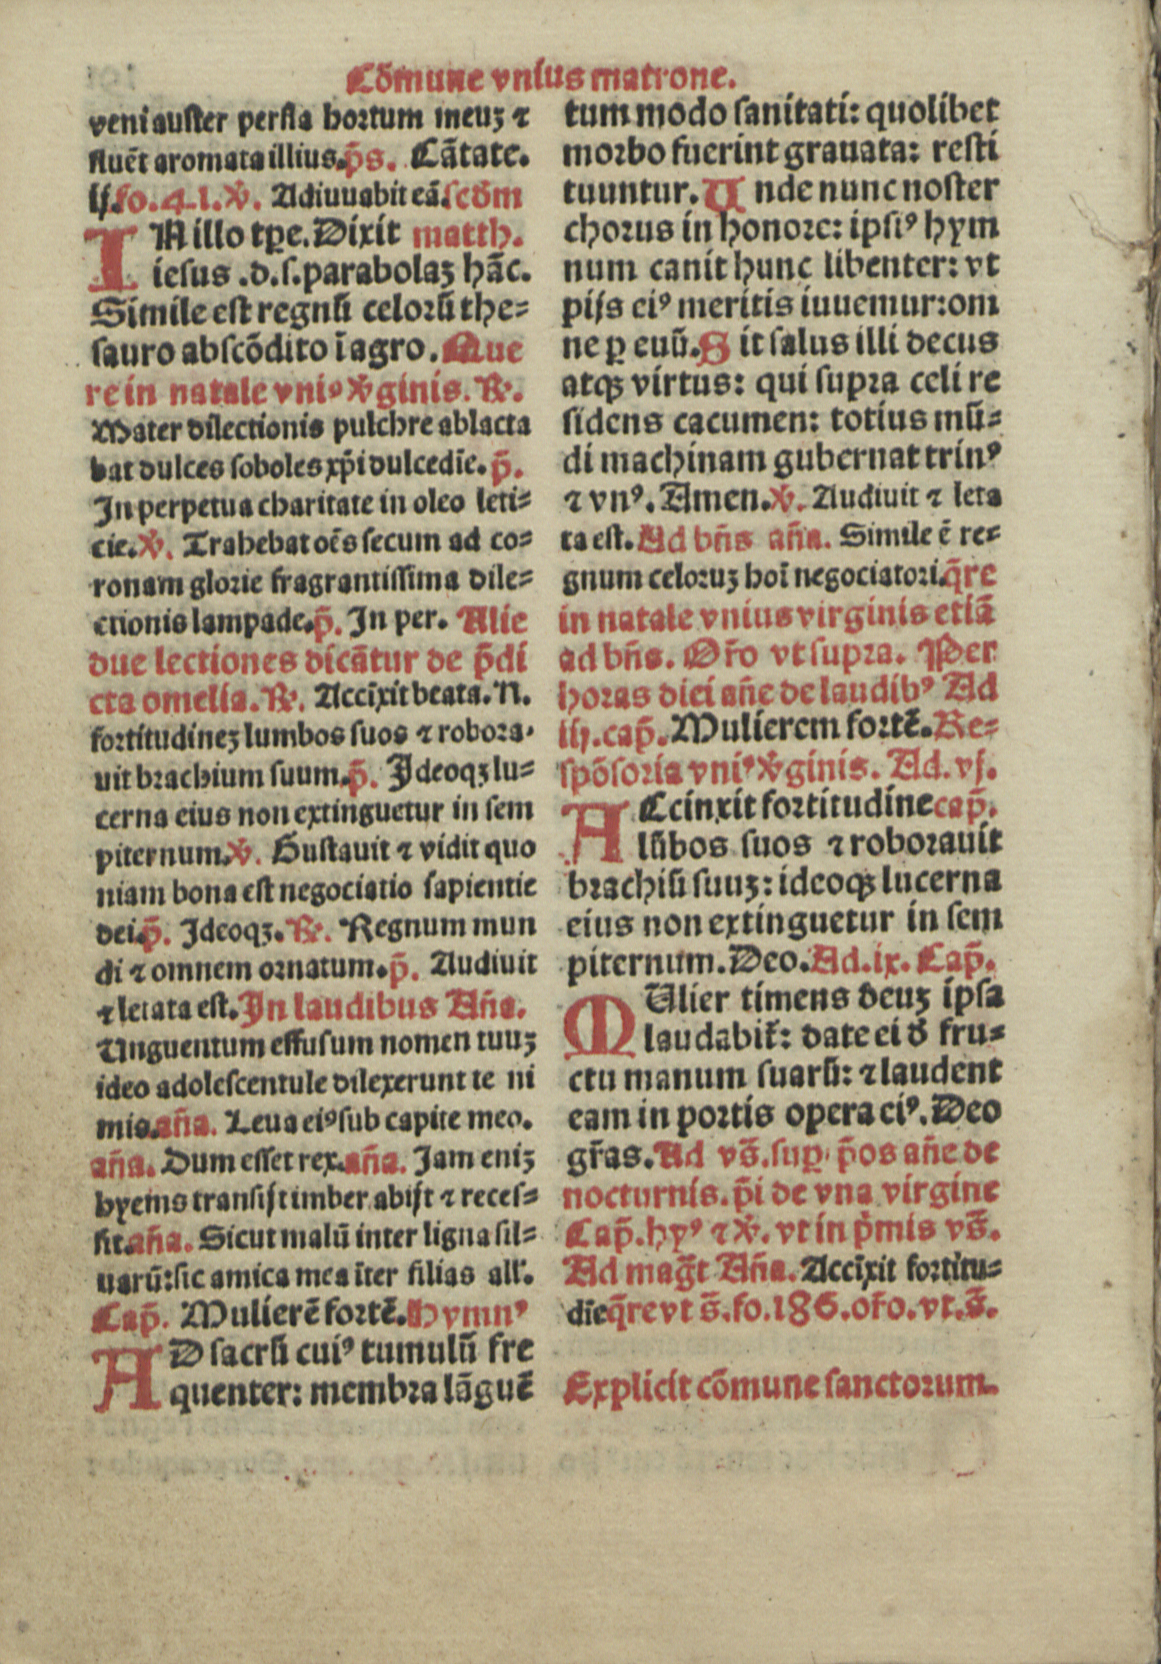 Cõmune vnius matrone.
veni auster perfla hortum meuʒ ⁊
fluẽt aromata illius.p̃s. Cãtate.
ij.fo.41.℣. Adiuuabit eã.scđm
IN illo tꝑe. Dixit matth.
iesus .d.s. parabolaʒ hãc.
Simile est regnũ celorũ the⸗
sauro abscõdito ĩ agro. Que
re in natale vniꝰ ꝟginis. ℟.
Mater dilectionis pulchre ablacta
bat dulces soboles xp̃i dulcedĩe. p̃.
In perpetua charitate in oleo leti⸗
cie.℣. Trahebat oẽs secum ad co⸗
ronam glorie fragrantissima dile⸗
ctionis lampade.p̃. In per. Alie
due lectiones dicãtur de p̃di
cta omelia. ℟. Accĩxit beata. N.
fortitudineʒ lumbos suos ⁊ robora⸗
uit brachium suum.p̃. Ideoqʒ lu⸗
cerna eius non extinguetur in sem
piternum.℣. Gustauit ⁊ vidit quo
niam bona est negociatio sapientie
dei.p̃. Ideoqʒ. ℟. Regnum mun
di ⁊ omnem ornatum.p̃. Audiuit
⁊ letata est. In laudibus Aña.
Unguentum effusum nomen tuuʒ
ideo adolescentule dilexerunt te ni
mis.aña. Leua eiꝰ sub capite meo.
aña. Dum esset rex.aña. Jam eniʒ
hyems transijt imber abijt ⁊ reces⸗
sit.aña. Sicut malũ inter ligna sil⸗
uarũ: sic amica mea ĩter filias all'.
Cap̃. Mulierẽ fortẽ. Hymnꝰ
AD sacrũ cuiꝰ tumulũ fre
quenter: membra lãguẽ
tum modo sanitati: quolibet
morbo fuerint grauata: resti
tuuntur. Unde nunc noster
chorus in honore: ipsiꝰ hym
num canit hunc libenter: vt
pijs eiꝰ meritis iuuemur: om
ne ꝑ euũ. Sit salus illi decus
atqʒ virtus: qui supra celi re
sidens cacumen: totius mũ⸗
di machinam gubernat trinꝰ
⁊ vnꝰ. Amen.℣. Audiuit ⁊ leta
ta est. Ad bñs aña. Simile ẽ re⸗
gnum celoruʒ hoĩ negociatori.q̃re
in natale vnius virginis etiã
ad bñs. Or̃o vt supra. Per
horas diei añe de laudibꝰ Ad
iij. cap̃. Mulierem fortẽ. Re⸗
spõsoria vniꝰ ꝟginis. Ad. vj.
ACcinxit fortitudine cap̃.
lũbos suos ⁊ roborauit
brachiũ suuʒ: ideoqʒ lucerna
eius non extinguetur in sem
piternum. Deo. Ad.ix. Cap̃.
MUlier timens deuʒ ipsa
laudabit̃: date ei đ fru⸗
ctu manum suarũ: ⁊ laudent
eam in portis opera eiꝰ. Deo
gr̃as. Ad vs̃. suꝑ p̃os añe de
nocturnis. p̃i de vna virgine
Cap̃. hyꝰ ⁊ ℣. vt in p̃mis vs̃.
Ad mag̃t Aña. Accĩxit fortitu⸗
dĩe q̃re vt s̃. fo.186. or̃o. vt. s̃.
Explicit cõmune sanctorum.